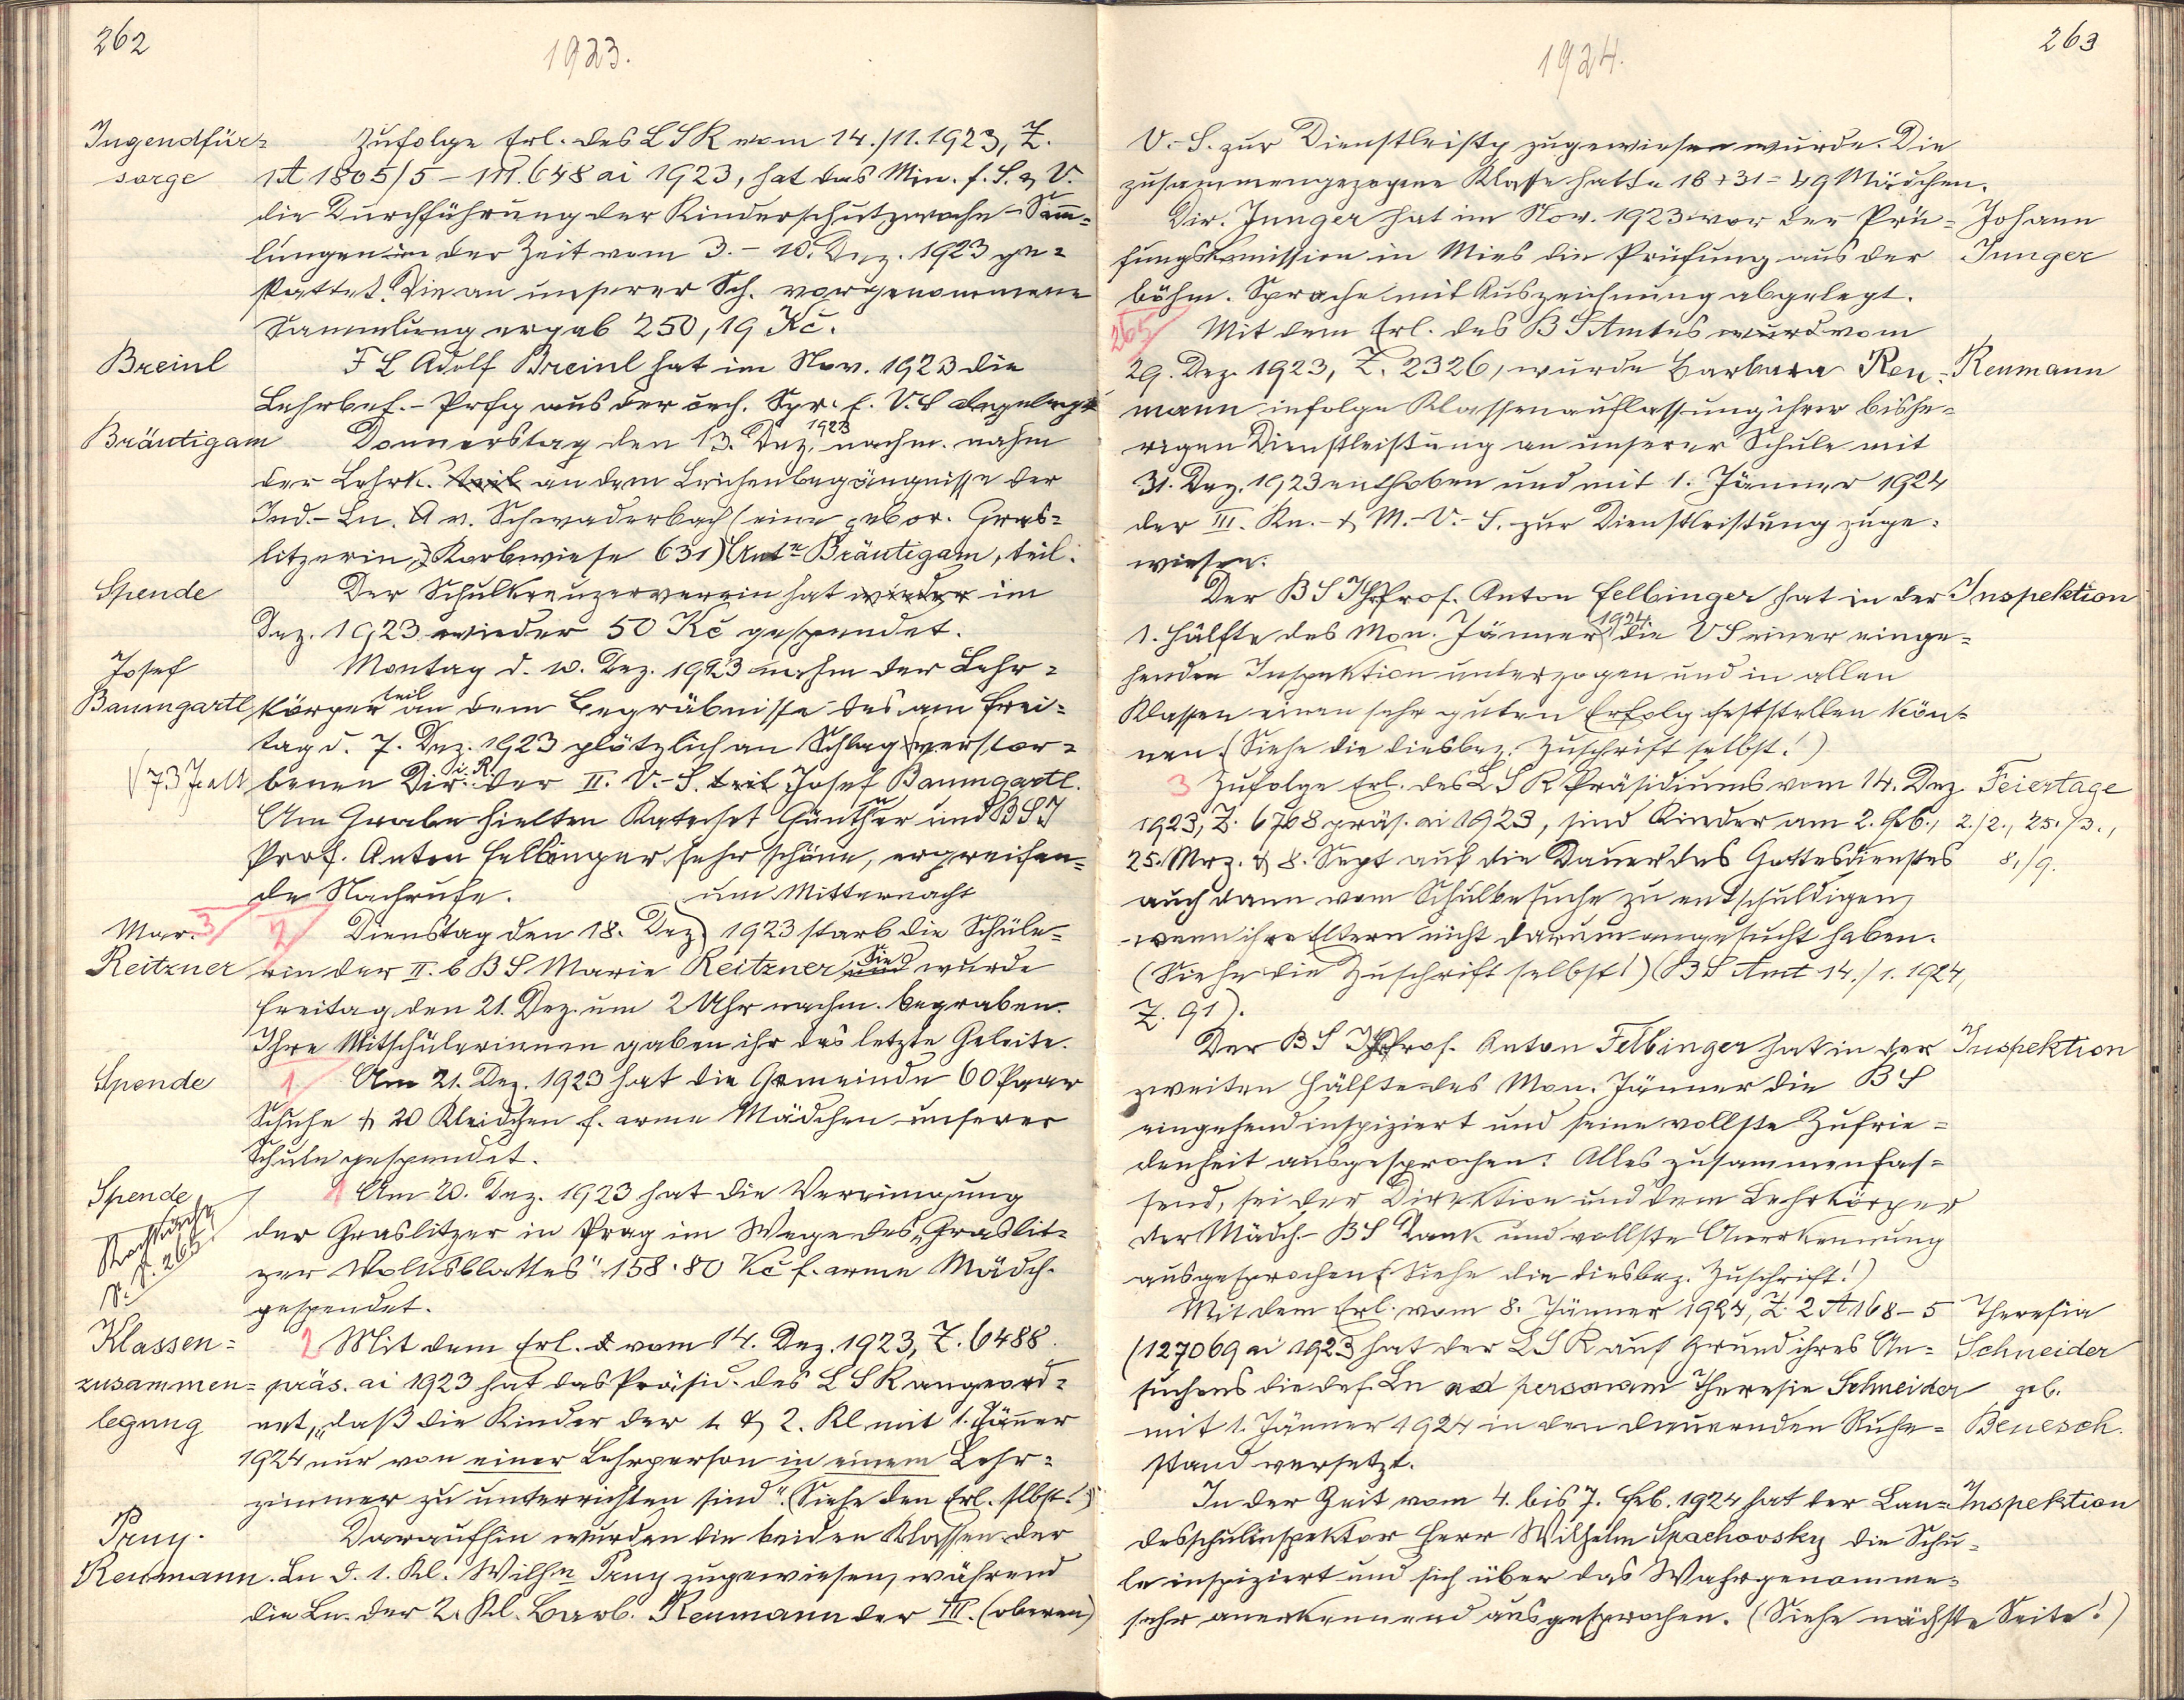 262
1923.
Jugendfür-
sorge
Zufolge Erl. des LSR vom 14./11.1923, Z.
1A 1805/5 - III.648 ai 1923, hat das Min. f. S. & V.
die Durchführung der Kinderschutzwoche-Sam̄-
lungen in der Zeit vom 3.- 10. Dez. 1923 ge-
stattet. Die an unserer Sch. vorgenommene
Sammlung ergab 250,19 Kč.
Breinl
FL Adolf Breinl hat im Nov. 1923 die
Lehrbef.-Prfg aus der čech. Spr. f. V.S abgelegt
Bräutigam
Donnerstag den 13. Dez. 1923 nachm. nahm
der Lehrk. teil an dem Leichenbegängnisse der
Ind.-Ln. A v. Schwaderbach (eine gebor. Gras-
litzerin, Korbwiese 631) Ant. Bräutigam, teil.
Spende
Der Schulkreuzerverein hat wieder im
Dez. 1923 wieder 50 Kč gespendet.
Josef
Baumgartl
Montag d. 10. Dez. 1923 nahm der Lehr-
körper teil an dem Begräbnisse des am Frei-
tag d. 7. Dez. 1923 plötzlich an Schlag verstor-
(73 J alt
benen Dir. i. R. der II. V.-S. teil Josef Baumgartl.
Am Grabe hielten Katechet Günther und BSI
Prof. Anton Felbinger sehr schöne, ergreifen-
de Nachrufe.
um Mitternacht
Mar. 3
Reitzner
2
Dienstag den 18. Dez. 1923 starb die Schüle-
rin der II. b BS Marie Reitzner und Sie wurde
Freitag den 21. Dez. um 2 Uhr nachm. begraben.
Ihre Mitschülerinnen gaben ihr das letzte Geleite.
Spende
1. Am 21. Dez. 1923 hat die Gemeinde 60 Paar
Schuhe & 20 Kleidchen f. arme Mädchen unserer
Schule gespendet.
Spende
Nachtrag
s. S. 265.
1 Am 20. Dez. 1923 hat die Vereinigung
der Graslitzer in Prag im Wege des „Graslit-
zer Volksblattes" 158·80 Kč f. arme Mädch.
gespendet.
Klassen-
zusammen-
legung
2 Mit dem Erl. d vom 14. Dez. 1923, Z. 6488
präs. ai 1923 hat das Präsid. des LSR angeord-
net, „daß die Kinder der 1. & 2. Kl mit 1. Jän̄er
1924 nur von einer Lehrperson in einem Lehr-
zimmer zu unterrichten sind". (Siehe den Erl. slbst!)
Reumann.
Daraufhin wurden die beiden Klassen der
Ln d. 1. Kl. Wilhne zugewiesen, während
die Ln. der 2. Kl. Barb. Reumann der III. (oberen)
263
1924.
V.-S. zur Dienstleistg zugewiesen wurde. Die
zusammengezogene Klasse hatte 18+31=49 Mädchen.
Dir. Junger hat im Nov. 1923 vor der Prü-
fungskomission in Mies die Prüfung aus der
böhm. Sprache mit Auszeichnung abgelegt.
Johann
Junger
265
Mit dem Erl. des BSAmtes wurd vom
29. Dez. 1923, Z. 2326, wurde Barbara Reu-
mann infolge Klassenauflassung ihrer bishe-
rigen Dienstleistung an unserer Schule mit
31. Dez. 1923 enthoben und mit 1. Jänner 1924
der III. Kn.- & M.-V.-S. zur Dienstleistung zuge-
wiesen.
Reumann
Der BSI Prof. Anton Felbinger hat in der
1. Hälfte des Mon. Jänner 1924 die VS einer einge-
henden Inspektion unterzogen und in allen
Klassen einen sehr guten Erfolg feststellen kön-
nen. (Siehe die diesbez. Zuschrift selbst!)
Inspektion
3 Zufolge Erl. des LSR Präsidiums vom 14. Dez.
1923, Z. 6768 präs. ai 1923, sind Kinder am 2. Feb.,
25. Mrz. & 8. Sept auf die Dauer des Gottesdienstes
auch dann vom Schulbesuche zu entschuldigen,
wenn ihre Eltern nicht darum angesucht haben.
(Siehe die Zuschrift selbst!) (BS Amt 14./1. 1924,
Z. 91).
Feiertage
2./2., 25./3.,
8./9.
Der BSI Prof. Anton Felbinger hat in der
zweiten Hälfte des Mon. Jänner die BS
eingehend inspiziert und seine vollste Zufrie-
denheit ausgesprochen: Alles zusammenfas-
send, sei der Direktion und dem Lehrkörper
der Mädch.-BS Dank und vollste Anerkennung
ausgesprochen. (Siehe die diesbez. Zuschrift!)
Inspektion
Mit dem Erl. vom 8. Jänner 1924, Z. 2 A 168-5
(127069 ai 1923 hat der LSR auf Grund ihres An-
suchens die def. Ln ad personam Theresie Schneider
mit 1. Jänner 1924 in den dauernden Ruhe-
stand versetzt.
Theresia
Schneider
geb.
Benesch.
In der Zeit vom 4. bis 7. Feb. 1924 hat der Lan-
desschulinspektor Herr Wilhelm Spachovsky die Schu-
le inspiziert und sich über das Wahrgenomme-
sehr anerkennend ausgesprochen. (Siehe nächste Seite!)
Inspektion